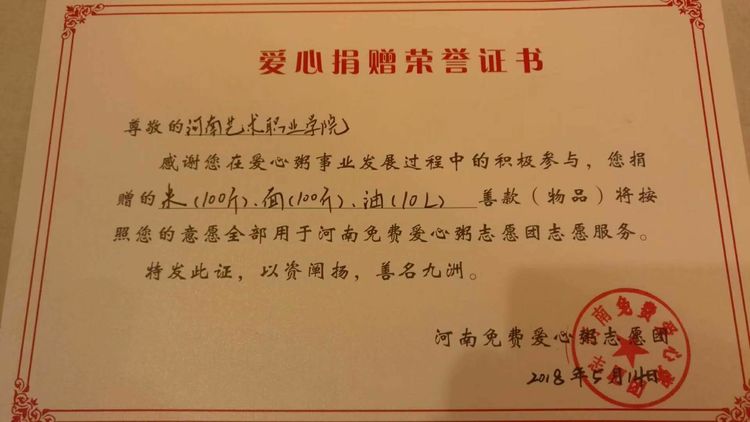 爱心捐赠荣誉证书
尊敬的河南艺术职业学院
感谢您在爱心粥事业发展过程中的积极参与，您捐
赠的米(100斤)、面(100斤)、油(10L)善款（物品）将按
照您的意愿全部用于河南免费爱心粥志愿团志愿服务。
特发此证，以资阐扬，善名九洲。
河南免费爱心粥志愿团
2018年5月14日